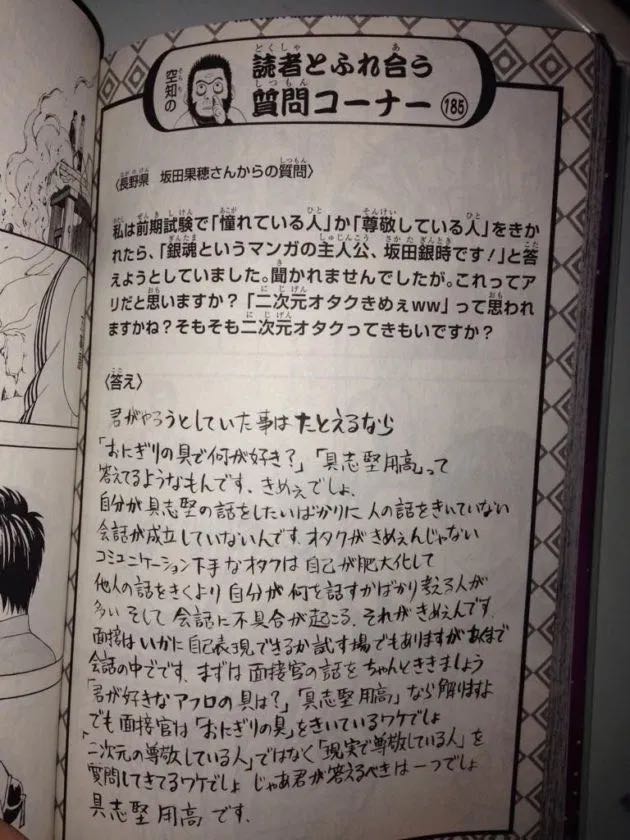 空知の
読者とふれ合う
質問コーナー 185
〈長野県 坂田果穂さんからの質問〉
私は前期試験で「憧れている人」か「尊敬している人」をきか
れたら、「銀魂というマンガの主人公、坂田銀時です！」と答
えようとしていました。聞かれませんでしたが。これってア
リだと思いますか？「二次元オタクきめぇww」って思われ
ますかね？そもそも二次元オタクってきもいですか？
〈答え〉
君がやろうとしていた事はたとえるなら
「おにぎりの具で何が好き？」「具志堅用高」って
答えてるようなもんです、きめぇでしょ、
自分が具志堅の話をしたいばかりに人の話をきいていない
会話が成立していないんです、オタクがきめぇんじゃない
コミュニケーション下手なオタクは自己が肥大化して
他人の話をきくより自分が何を話すかばかり考える人が
多い そして会話に不具合が起こる、それがきめぇんです、
面接はいかに自己表現できるか試す場でもありますがあくまで
会話の中でです、まずは面接官の話をちゃんとききましょう
「君が好きなアフロの具は？」「具志堅用高」なら解りますよ
でも面接官は「おにぎりの具」をきいているワケでしょ
「二次元の尊敬している人」ではなく「現実で尊敬している人」を
質問してきてるワケでしょ じゃあ君が答えるべきは一つでしょ
具志堅用高です、